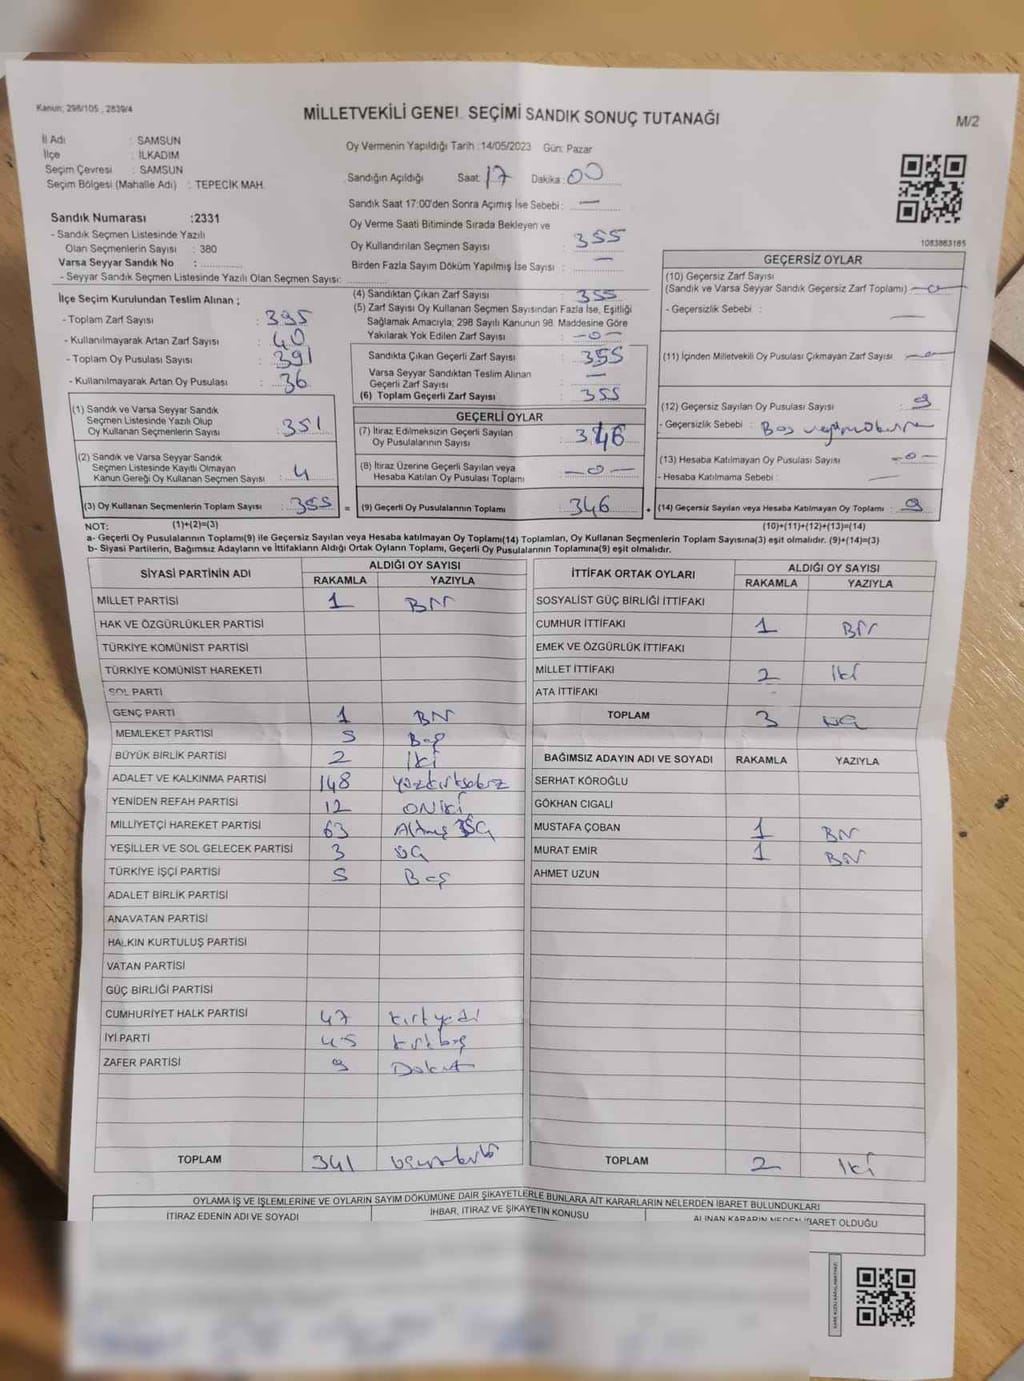 Kanun; 298/105 , 2839/4
MİLLETVEKİLİ GENEL SEÇİMİ SANDIK SONUÇ TUTANAĞI
M/2
İl Adı : SAMSUN
İlçe : İLKADIM
Seçim Çevresi : SAMSUN
Seçim Bölgesi (Mahalle Adı) : TEPECİK MAH.
Oy Vermenin Yapıldığı Tarih :14/05/2023 Gün: Pazar
Sandığın Açıldığı Saat: 17 Dakika: 00
Sandık Saat 17:00'den Sonra Açımış İse Sebebi : —
Oy Verme Saati Bitiminde Sırada Bekleyen ve
Oy Kullandırılan Seçmen Sayısı : 355
Birden Fazla Sayım Döküm Yapılmış İse Sayısı : —
1083863165
Sandık Numarası :2331
- Sandık Seçmen Listesinde Yazılı
Olan Seçmenlerin Sayısı : 380
Varsa Seyyar Sandık No :
- Seyyar Sandık Seçmen Listesinde Yazılı Olan Seçmen Sayısı:
İlçe Seçim Kurulundan Teslim Alınan ;
- Toplam Zarf Sayısı : 395
- Kullanılmayarak Artan Zarf Sayısı : 40
- Toplam Oy Pusulası Sayısı : 391
- Kullanılmayarak Artan Oy Pusulası : 36
(1) Sandık ve Varsa Seyyar Sandık
Seçmen Listesinde Yazılı Olup
Oy Kullanan Seçmenlerin Sayısı : 351
(2) Sandık ve Varsa Seyyar Sandık
Seçmen Listesinde Kayıtlı Olmayan
Kanun Gereği Oy Kullanan Seçmen Sayısı : 4
(3) Oy Kullanan Seçmenlerin Toplam Sayısı : 355 =
(1)+(2)=(3)
(4) Sandıktan Çıkan Zarf Sayısı : 355
(5) Zarf Sayısı Oy Kullanan Seçmen Sayısından Fazla İse, Eşitliği
Sağlamak Amacıyla; 298 Sayılı Kanunun 98. Maddesine Göre
Yakılarak Yok Edilen Zarf Sayısı : —0—
Sandıkta Çıkan Geçerli Zarf Sayısı : 355
Varsa Seyyar Sandıktan Teslim Alınan
Geçerli Zarf Sayısı : —
(6) Toplam Geçerli Zarf Sayısı : 355
GEÇERLİ OYLAR
(7) İtiraz Edilmeksizin Geçerli Sayılan
Oy Pusulalarının Sayısı : 346
(8) İtiraz Üzerine Geçerli Sayılan veya
Hesaba Katılan Oy Pusulası Toplamı : —0—
(9) Geçerli Oy Pusulalarının Toplamı : 346
GEÇERSİZ OYLAR
(10) Geçersiz Zarf Sayısı
(Sandık ve Varsa Seyyar Sandık Geçersiz Zarf Toplamı) —0—
- Geçersizlik Sebebi : —
(11) İçinden Milletvekili Oy Pusulası Çıkmayan Zarf Sayısı —0—
(12) Geçersiz Sayılan Oy Pusulası Sayısı : 9
- Geçersizlik Sebebi :
(13) Hesaba Katılmayan Oy Pusulası Sayısı : —0—
- Hesaba Katılmama Sebebi : —
(14) Geçersiz Sayılan veya Hesaba Katılmayan Oy Toplamı : 9
(10)+(11)+(12)+(13)=(14)
NOT:
a- Geçerli Oy Pusulalarının Toplamı(9) ile Geçersiz Sayılan veya Hesaba katılmayan Oy Toplamı(14) Toplamları, Oy Kullanan Seçmenlerin Toplam Sayısına(3) eşit olmalıdır. (9)+(14)=(3)
b- Siyasi Partilerin, Bağımsız Adayların ve İttifakların Aldığı Ortak Oyların Toplamı, Geçerli Oy Pusulalarının Toplamına(9) eşit olmalıdır.
SİYASİ PARTİNİN ADI ALDIĞI OY SAYISI
RAKAMLA YAZIYLA
MİLLET PARTİSİ 1 BİR
HAK VE ÖZGÜRLÜKLER PARTİSİ
TÜRKİYE KOMÜNİST PARTİSİ
TÜRKİYE KOMÜNİST HAREKETİ
SOL PARTİ
GENÇ PARTİ 1 BİR
MEMLEKET PARTİSİ 5 Beş
BÜYÜK BİRLİK PARTİSİ 2 İki
ADALET VE KALKINMA PARTİSİ 148 yüzkırksekiz
YENİDEN REFAH PARTİSİ 12 ONİKİ
MİLLİYETÇİ HAREKET PARTİSİ 63 Altmış üç
YEŞİLLER VE SOL GELECEK PARTİSİ 3 üç
TÜRKİYE İŞÇİ PARTİSİ 5 Beş
ADALET BİRLİK PARTİSİ
ANAVATAN PARTİSİ
HALKIN KURTULUŞ PARTİSİ
VATAN PARTİSİ
GÜÇ BİRLİĞİ PARTİSİ
CUMHURİYET HALK PARTİSİ 47 kırkyedi
İYİ PARTİ 45 kırkbeş
ZAFER PARTİSİ 9 Dokuz
TOPLAM 341 üçyüzkırkbir
İTTİFAK ORTAK OYLARI ALDIĞI OY SAYISI
RAKAMLA YAZIYLA
SOSYALİST GÜÇ BİRLİĞİ İTTİFAKI
CUMHUR İTTİFAKI 1 BİR
EMEK VE ÖZGÜRLÜK İTTİFAKI
MİLLET İTTİFAKI 2 İki
ATA İTTİFAKI
TOPLAM 3 üç
BAĞIMSIZ ADAYIN ADI VE SOYADI RAKAMLA YAZIYLA
SERHAT KÖROĞLU
GÖKHAN CIGALI
MUSTAFA ÇOBAN 1 BİR
MURAT EMİR 1 BİR
AHMET UZUN
TOPLAM 2 İki
OYLAMA İŞ VE İŞLEMLERİNE VE OYLARIN SAYIM DÖKÜMÜNE DAİR ŞİKAYETLERLE BUNLARA AİT KARARLARIN NELERDEN İBARET BULUNDUKLARI
İTİRAZ EDENİN ADI VE SOYADI İHBAR, İTİRAZ VE ŞİKAYETİN KONUSU ALINAN KARARIN NEDEN İBARET OLDUĞU